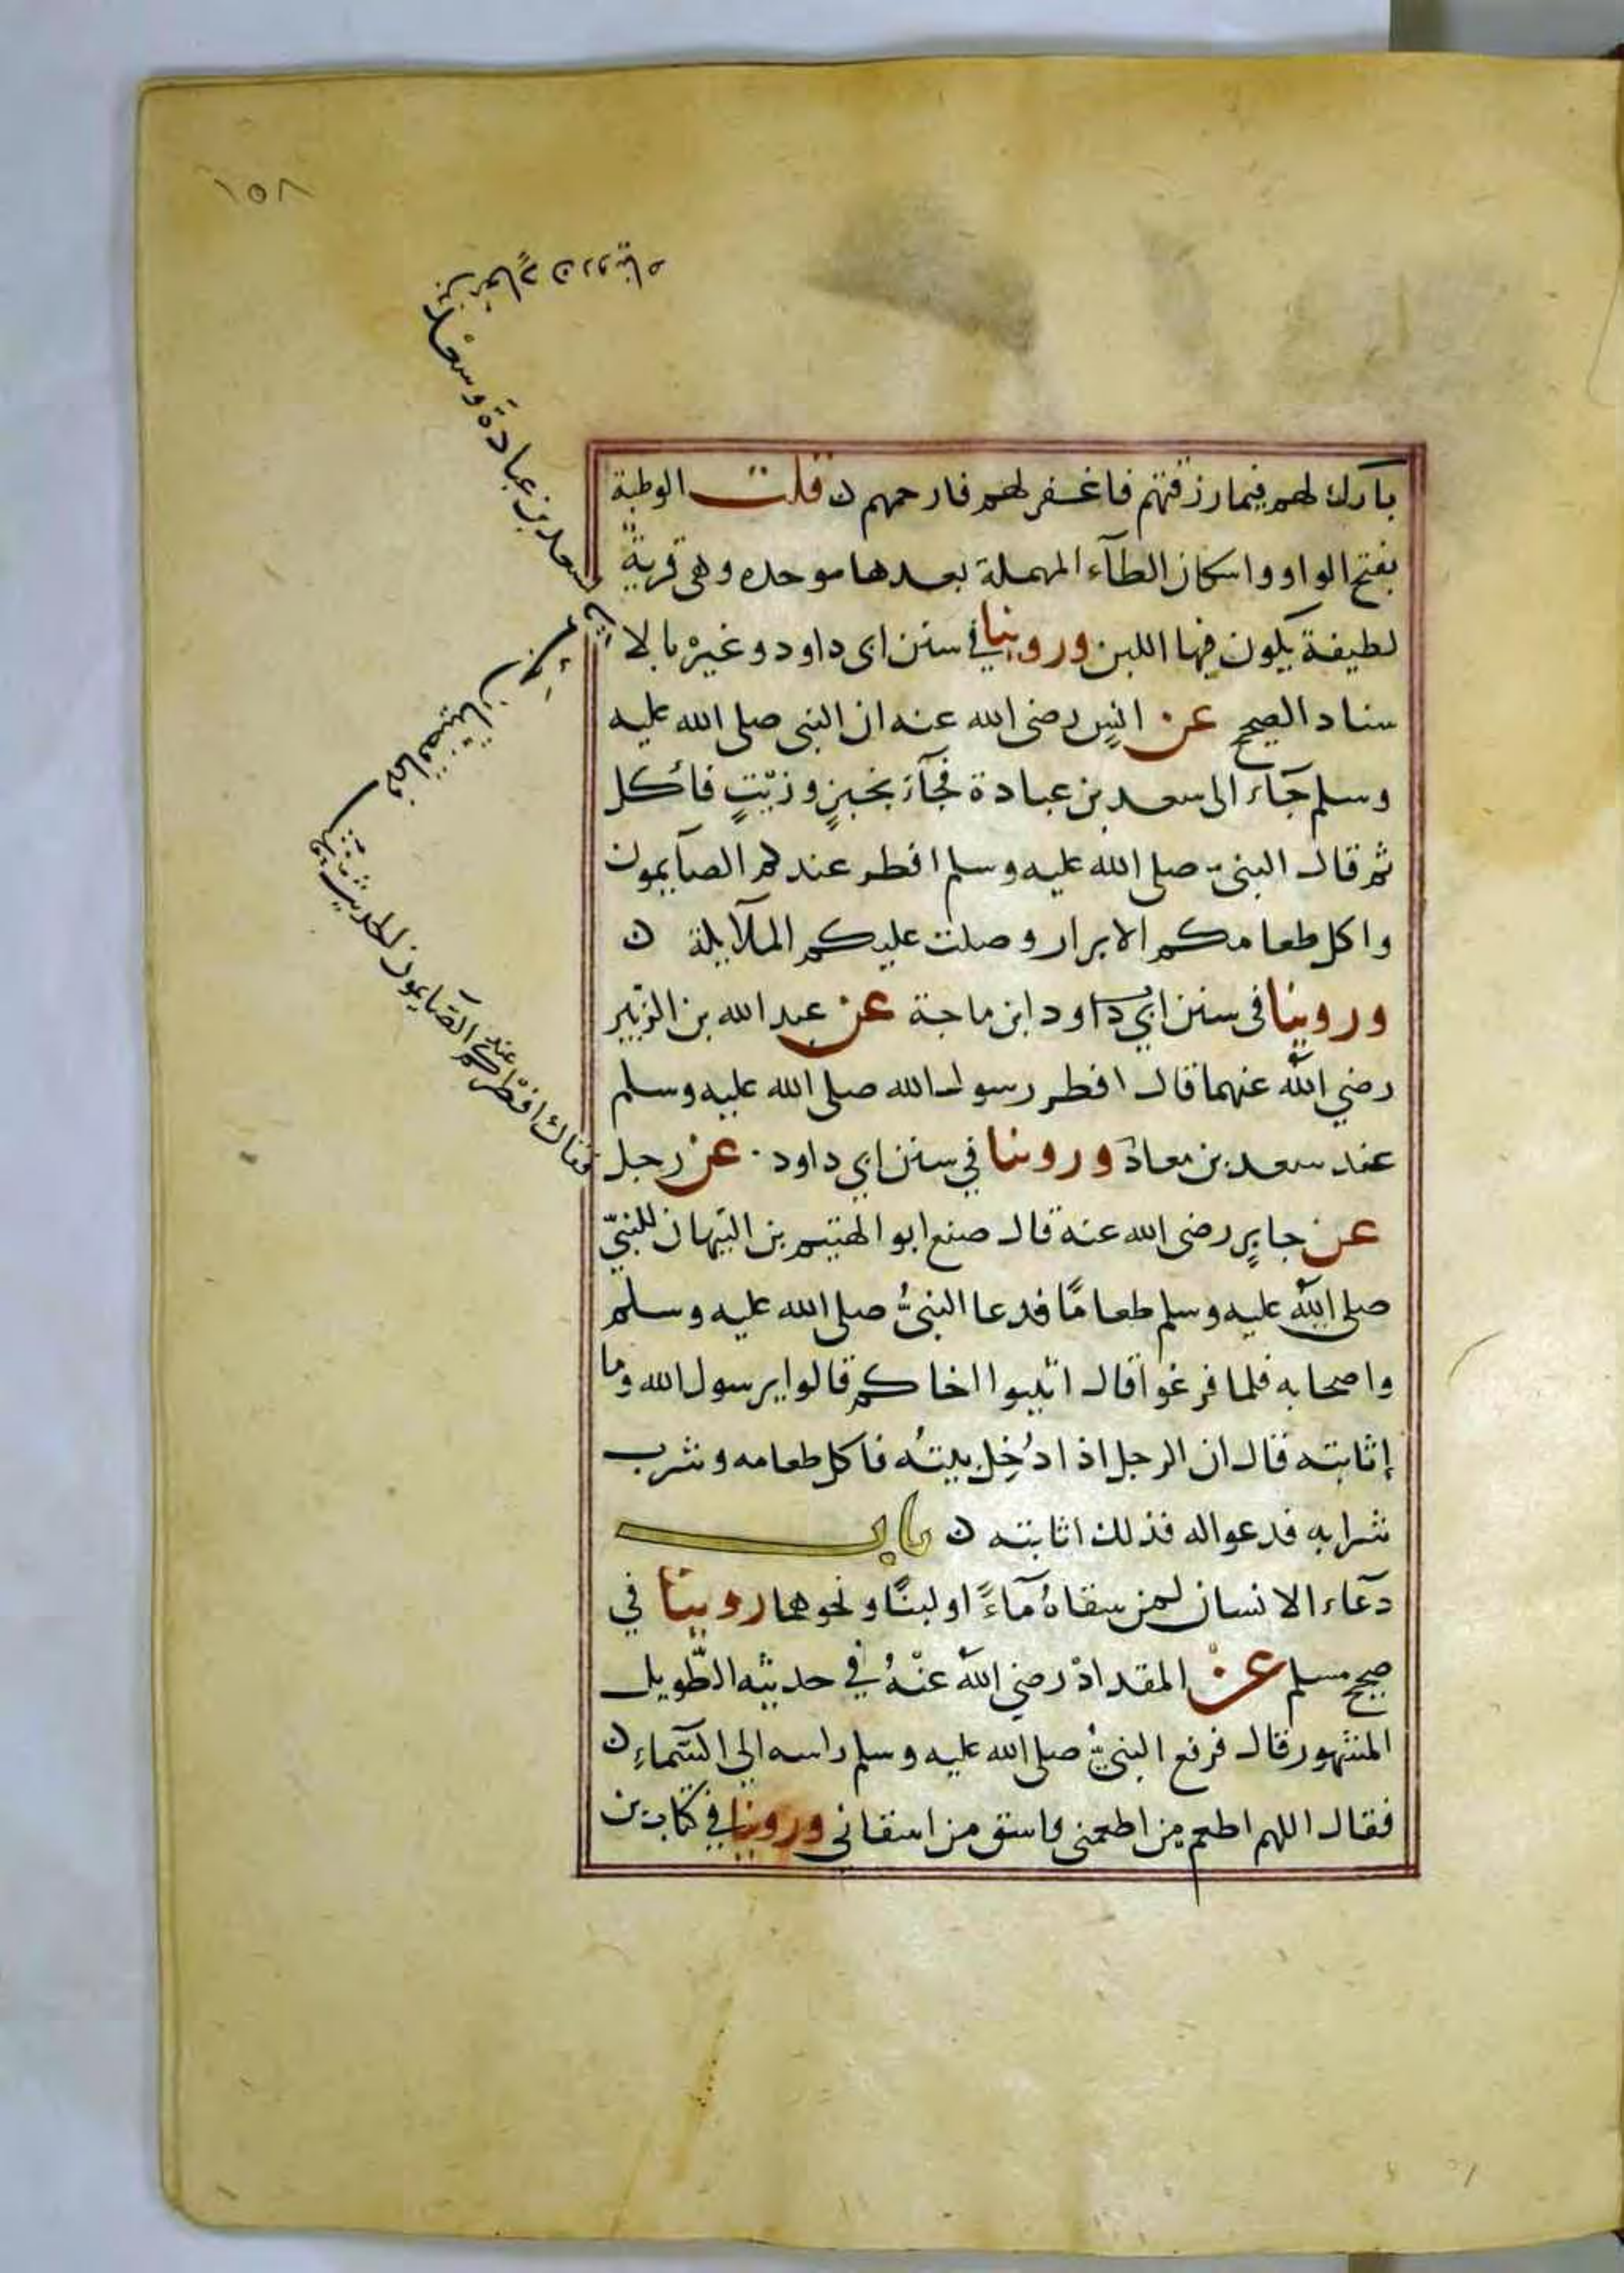 ١٥٨
بارك لهم فيما رزقتهم فاغفر لهم فارحمهم ن قلت الوطبة
بفتح الواو واسكان الطآء المهملة بعدها موحده وهى قربةٌ
لطيفة يكون فيها اللبن وروينا في سنن ابى داود وغيره بالا
سناد الصحيح عن انسٍ رضى الله عنه ان النبى صلى الله عليه
وسلم جآء الى سعد بن عبادة فجآء بخبزٍ وزيتٍ فأكل
ثم قال النبى صلى الله عليه وسلم افطر عندكم الصآيمون
واكل طعامكم الابرار وصلت عليكم الملآيكة ن
وروينا فى سنن ابي داود ابن ماجة عن عبد الله بن الزبير
رضي الله عنهما قال افطر رسول الله صلى الله عليه وسلم
عند سعد بن معاذ وروينا في سنن ابي داود عن رجل
عن جابرٍ رضى الله عنه قال صنع ابو الهيثم بن التيهان للنبيّ
صلى الله عليه وسلم طعامًا فدعا النبىُّ صلى الله عليه وسلم
واصحابه فلما فرغوا قال اثيبوا اخاكم قالوا يرسول الله وما
إثابته قال ان الرجل اذا دُخِل بيتُه فاكل طعامه وشرب
شرابه فدعوا له فذلك اثابته ن باب
دعآء الانسان لمن سقاهُ مآءً او لبنًا ونحوهما روينا في
صحيح مسلم عن المقداد رضي الله عنْهُ في حديثه الطّويل
المشهور قال فرفع النبيُّ صلى الله عليه وسلم راسه الى السّماءِ ن
فقال اللهم اطعم من اطعمنى واسق من اسقانى وروينا في كتاب بن
سعد بن عبادة وسعد بن
فقال افْطر عندكم الصّآيمون الحديث